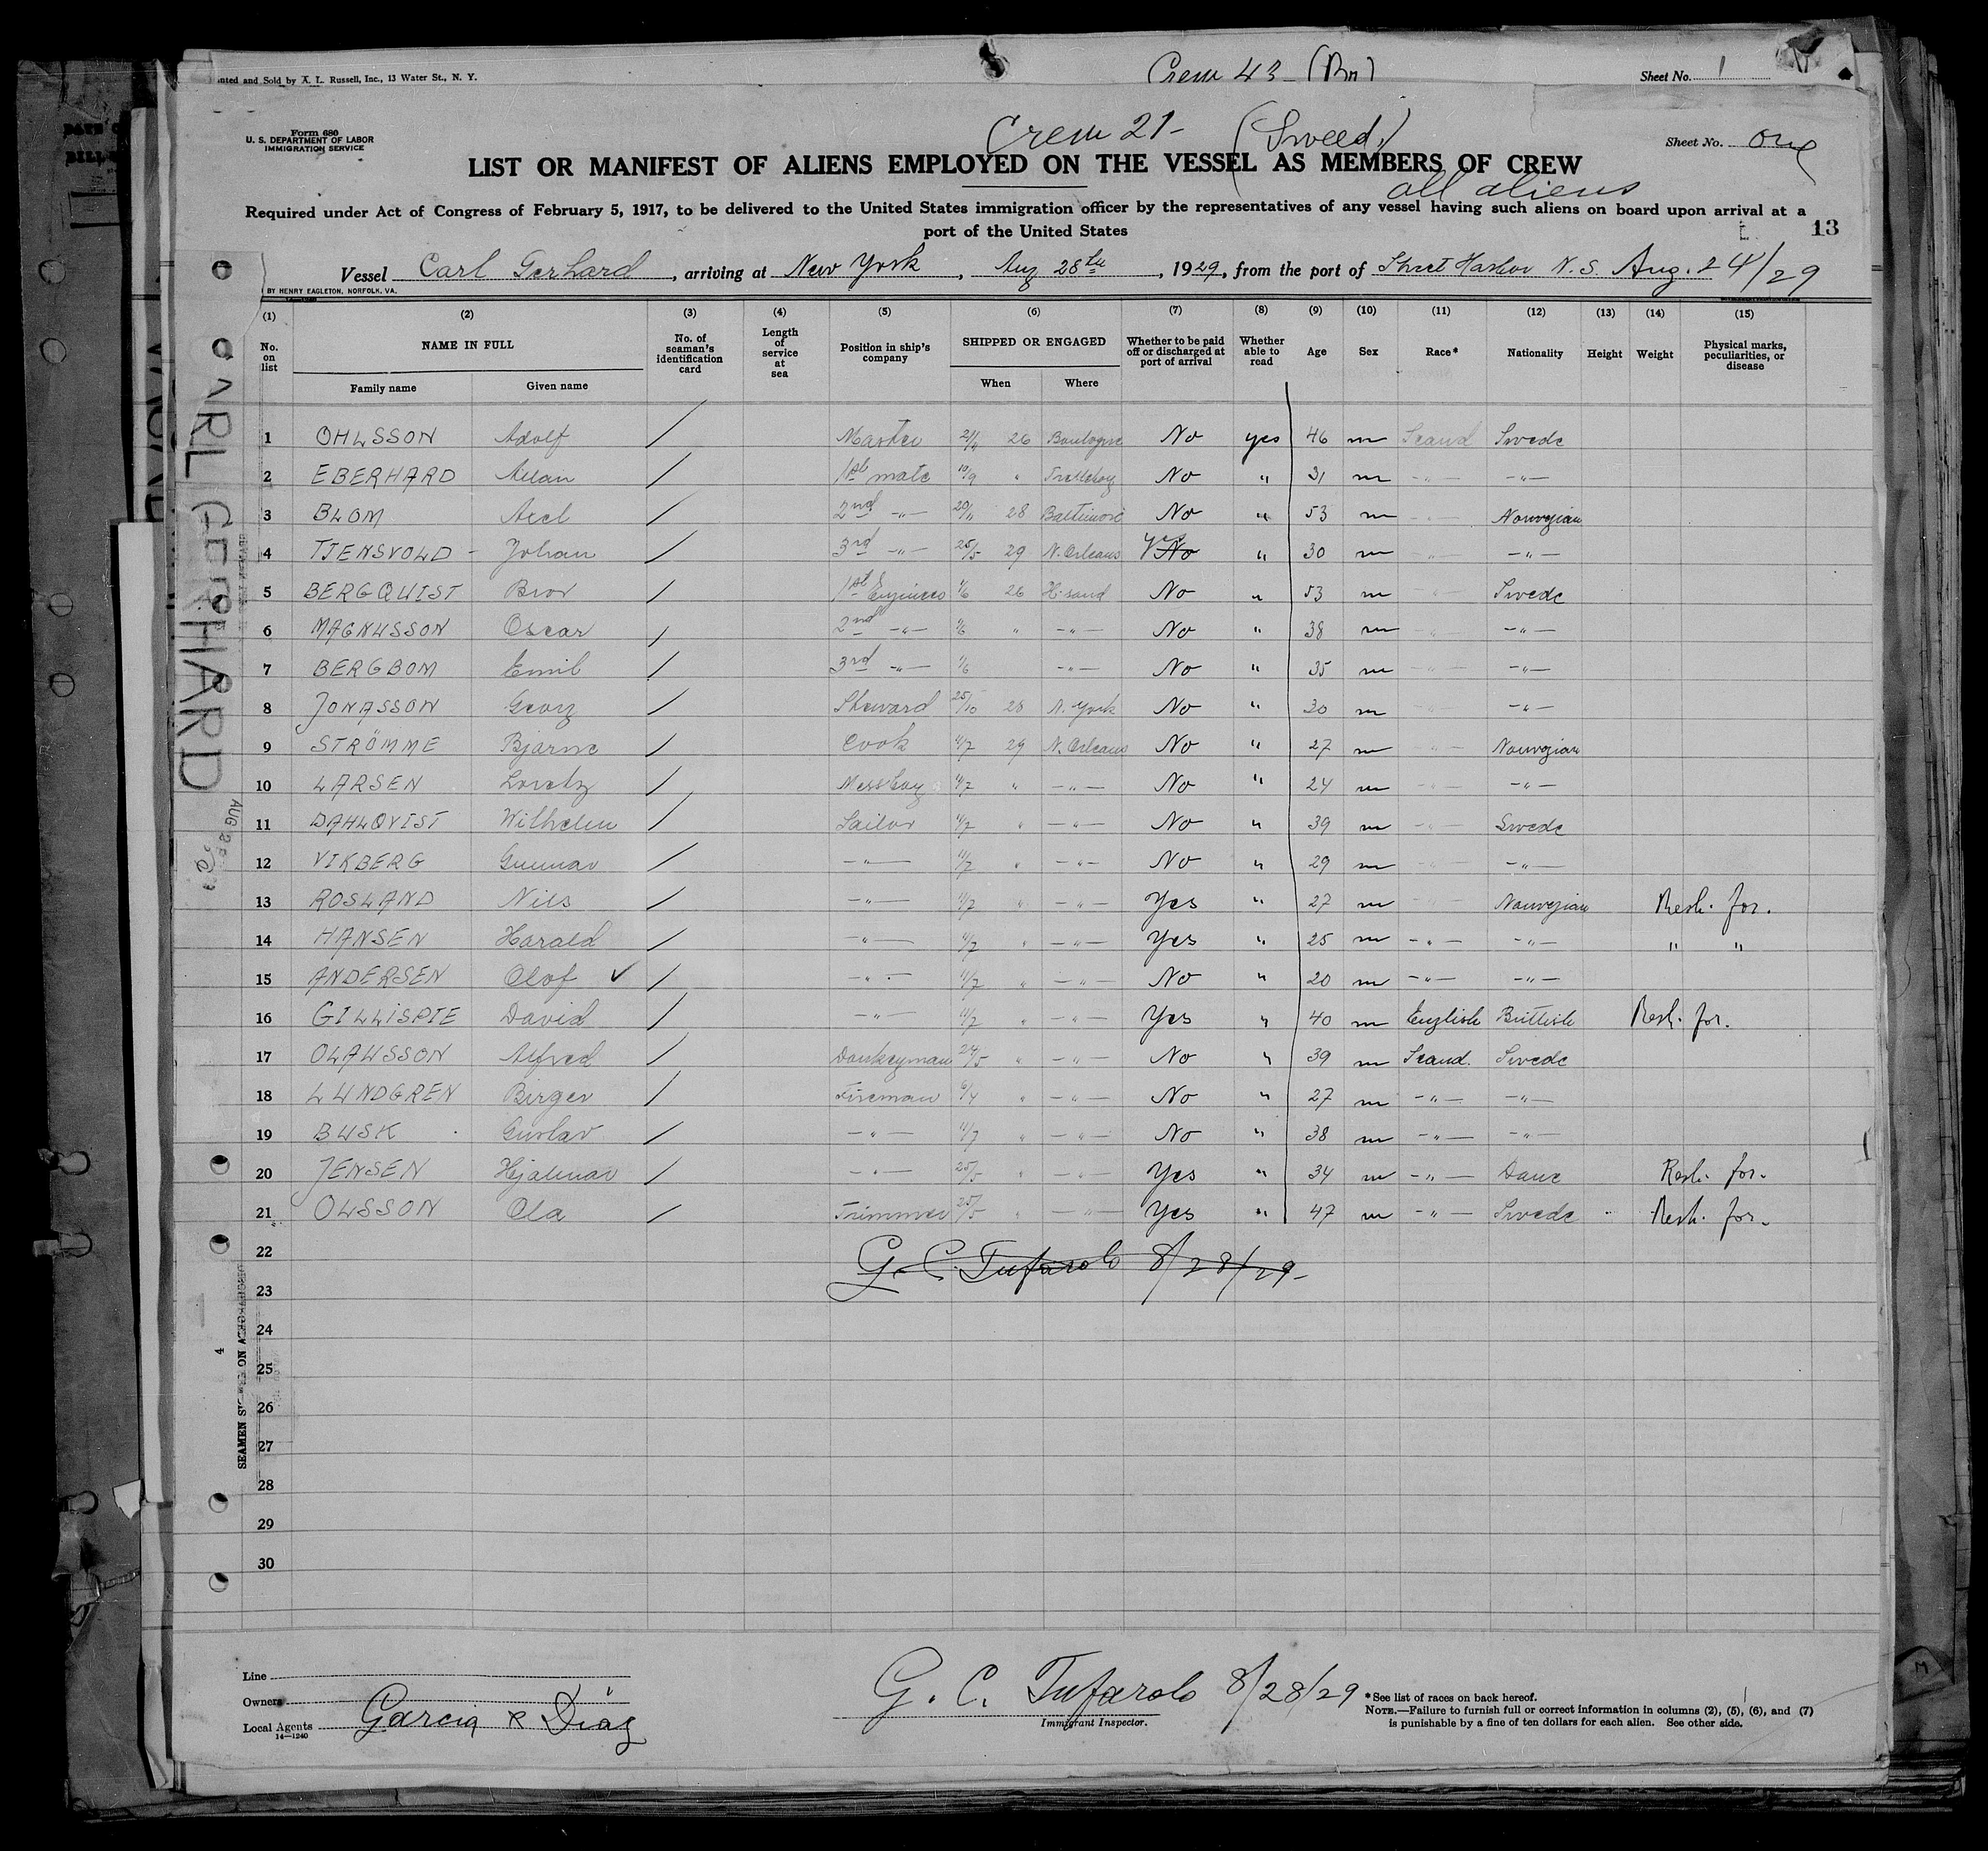 Printed and Sold by A. L. Russell, Inc., 13 Water St., N. Y.
Crew 43 - (Br)
Sheet No. 1
Form 680
U. S. DEPARTMENT OF LABOR
IMMIGRATION SERVICE
Crew 21 - (Sweed.)
Sheet No. One
LIST OR MANIFEST OF ALIENS EMPLOYED ON THE VESSEL AS MEMBERS OF CREW
all aliens
Required under Act of Congress of February 5, 1917, to be delivered to the United States immigration officer by the representatives of any vessel having such aliens on board upon arrival at a
port of the United States
13
Vessel Carl Gerhard, arriving at New York, Aug 28th, 1929, from the port of Sheet Harbor N.S. Aug. 24/29
BY HENRY EAGLETON, NORFOLK, VA.
(1) (2) (3) (4) (5) (6) (7) (8) (9) (10) (11) (12) (13) (14) (15)
No. on list NAME IN FULL Family name Given name No. of seaman's identification card Length of service at sea Position in ship's company SHIPPED OR ENGAGED When Where Whether to be paid off or discharged at port of arrival Whether able to read Age Sex Race* Nationality Height Weight Physical marks, peculiarities, or disease
1 OHLSSON Adolf / Master 26 Boulogne No yes 46 m Scand Swede
2 EBERHARD Allan / 1st mate 10/9 " Trelleborg No " 31 m -"- -"-
3 BLOM Axel / 2nd -"- 28 Baltimore No " 53 m -"- Norwegian
4 TJENSVOLD - Johan / 3rd -"- 25/5 29 N. Orleans yes No " 30 m -"- -"-
5 BERGQUIST Bror / 1st Engineer 1/6 26 H:sand No " 53 m -"- Swede
6 MAGNUSSON Oscar / 2nd -"- 1/6 " -"- No " 38 m -"- -"-
7 BERGBOM Emil / 3rd -"- 1/6 -"- No " 35 m -"- -"-
8 JONASSON Georg / Steward 25/10 28 N. York No " 30 m -"- -"-
9 STRÖMME Bjarne / Cook 11/7 29 N. Orleans No " 27 m -"- Norwegian
10 LARSEN Loretz / Messboy 11/7 " -"- No " 24 m -"- -"-
11 DAHLQVIST Wilhelm / Sailor 11/7 " -"- No " 39 m -"- Swede
12 VIKBERG Gunnar / -"- 11/7 " -"- No " 29 m -"- -"-
13 ROSLAND Nils / -"- 11/7 " -"- Yes " 27 m -"- Norwegian Resh. for.
14 HANSEN Harald / -"- 11/7 " -"- Yes " 25 m -"- -"- " "
15 ANDERSEN Olof ✓ / -"- 11/7 " -"- No " 20 m -"- -"-
16 GILLISPIE David / -"- 11/7 " -"- Yes " 40 m English Brittish Resh. for.
17 OLAUSSON Alfred / Donkeyman 24/5 " -"- No " 39 m Scand. Swede
18 LUNDGREN Birger / Fireman 6/4 " -"- No " 27 m -"- -"-
19 BUSK Gustav / -"- 11/7 " -"- No " 38 m -"- -"-
20 JENSEN Hjalmar / -"- 25/5 " -"- Yes " 34 m -"- Dane Resh. for.
21 OLSSON Ola / Trimmer 25/5 " -"- Yes " 47 m -"- Swede Resh. for.
22
G. C. Tufarolo 8/28/29
23
24
25
26
27
28
29
30
CARL GERHARD
AUG 28
4
Line
Owners
Local Agents Garcia & Diaz
14—1240
G. C. Tufarolo 8/28/29
Immigrant Inspector.
*See list of races on back hereof.
NOTE.—Failure to furnish full or correct information in columns (2), (5), (6), and (7)
is punishable by a fine of ten dollars for each alien. See other side.